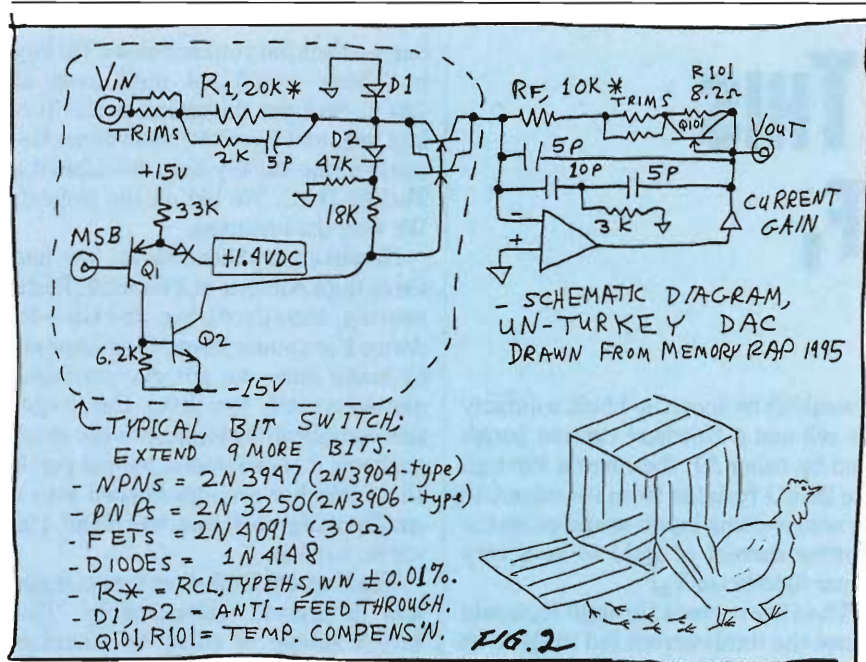 VIN
TRIMS
R1, 20K*
D1
2K
5P
D2
47K
18K
+15V
33K
MSB
Q1
+1.4VDC
Q2
6.2K
-15V
RF, 10K*
TRIMS
R101
8.2Ω
Q101
VOUT
5P
10P
5P
3K
-
+
CURRENT
GAIN
SCHEMATIC DIAGRAM,
UN-TURKEY DAC
DRAWN FROM MEMORY RAP 1995
TYPICAL BIT SWITCH:
EXTEND 9 MORE BITS.
- NPNs = 2N3947 (2N3904-type)
- PNPs = 2N3250 (2N3906-type)
- FETs = 2N4091 (30Ω)
- DIODES - 1N4148
- R* = RCL, TYPE HS, WW ±0.01%.
- D1, D2 = ANTI-FEEDTHROUGH.
- Q101, R101 = TEMP. COMPENS'N.
FIG.2